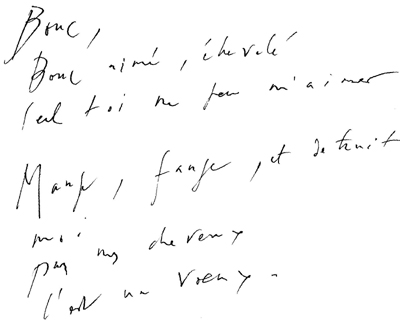 Bouc,
Bouc aimé, échevelé
seul toi ne peu m'aimer
Mange, fange, et détruit
moi
pas mes cheveux
c'est un voeux.